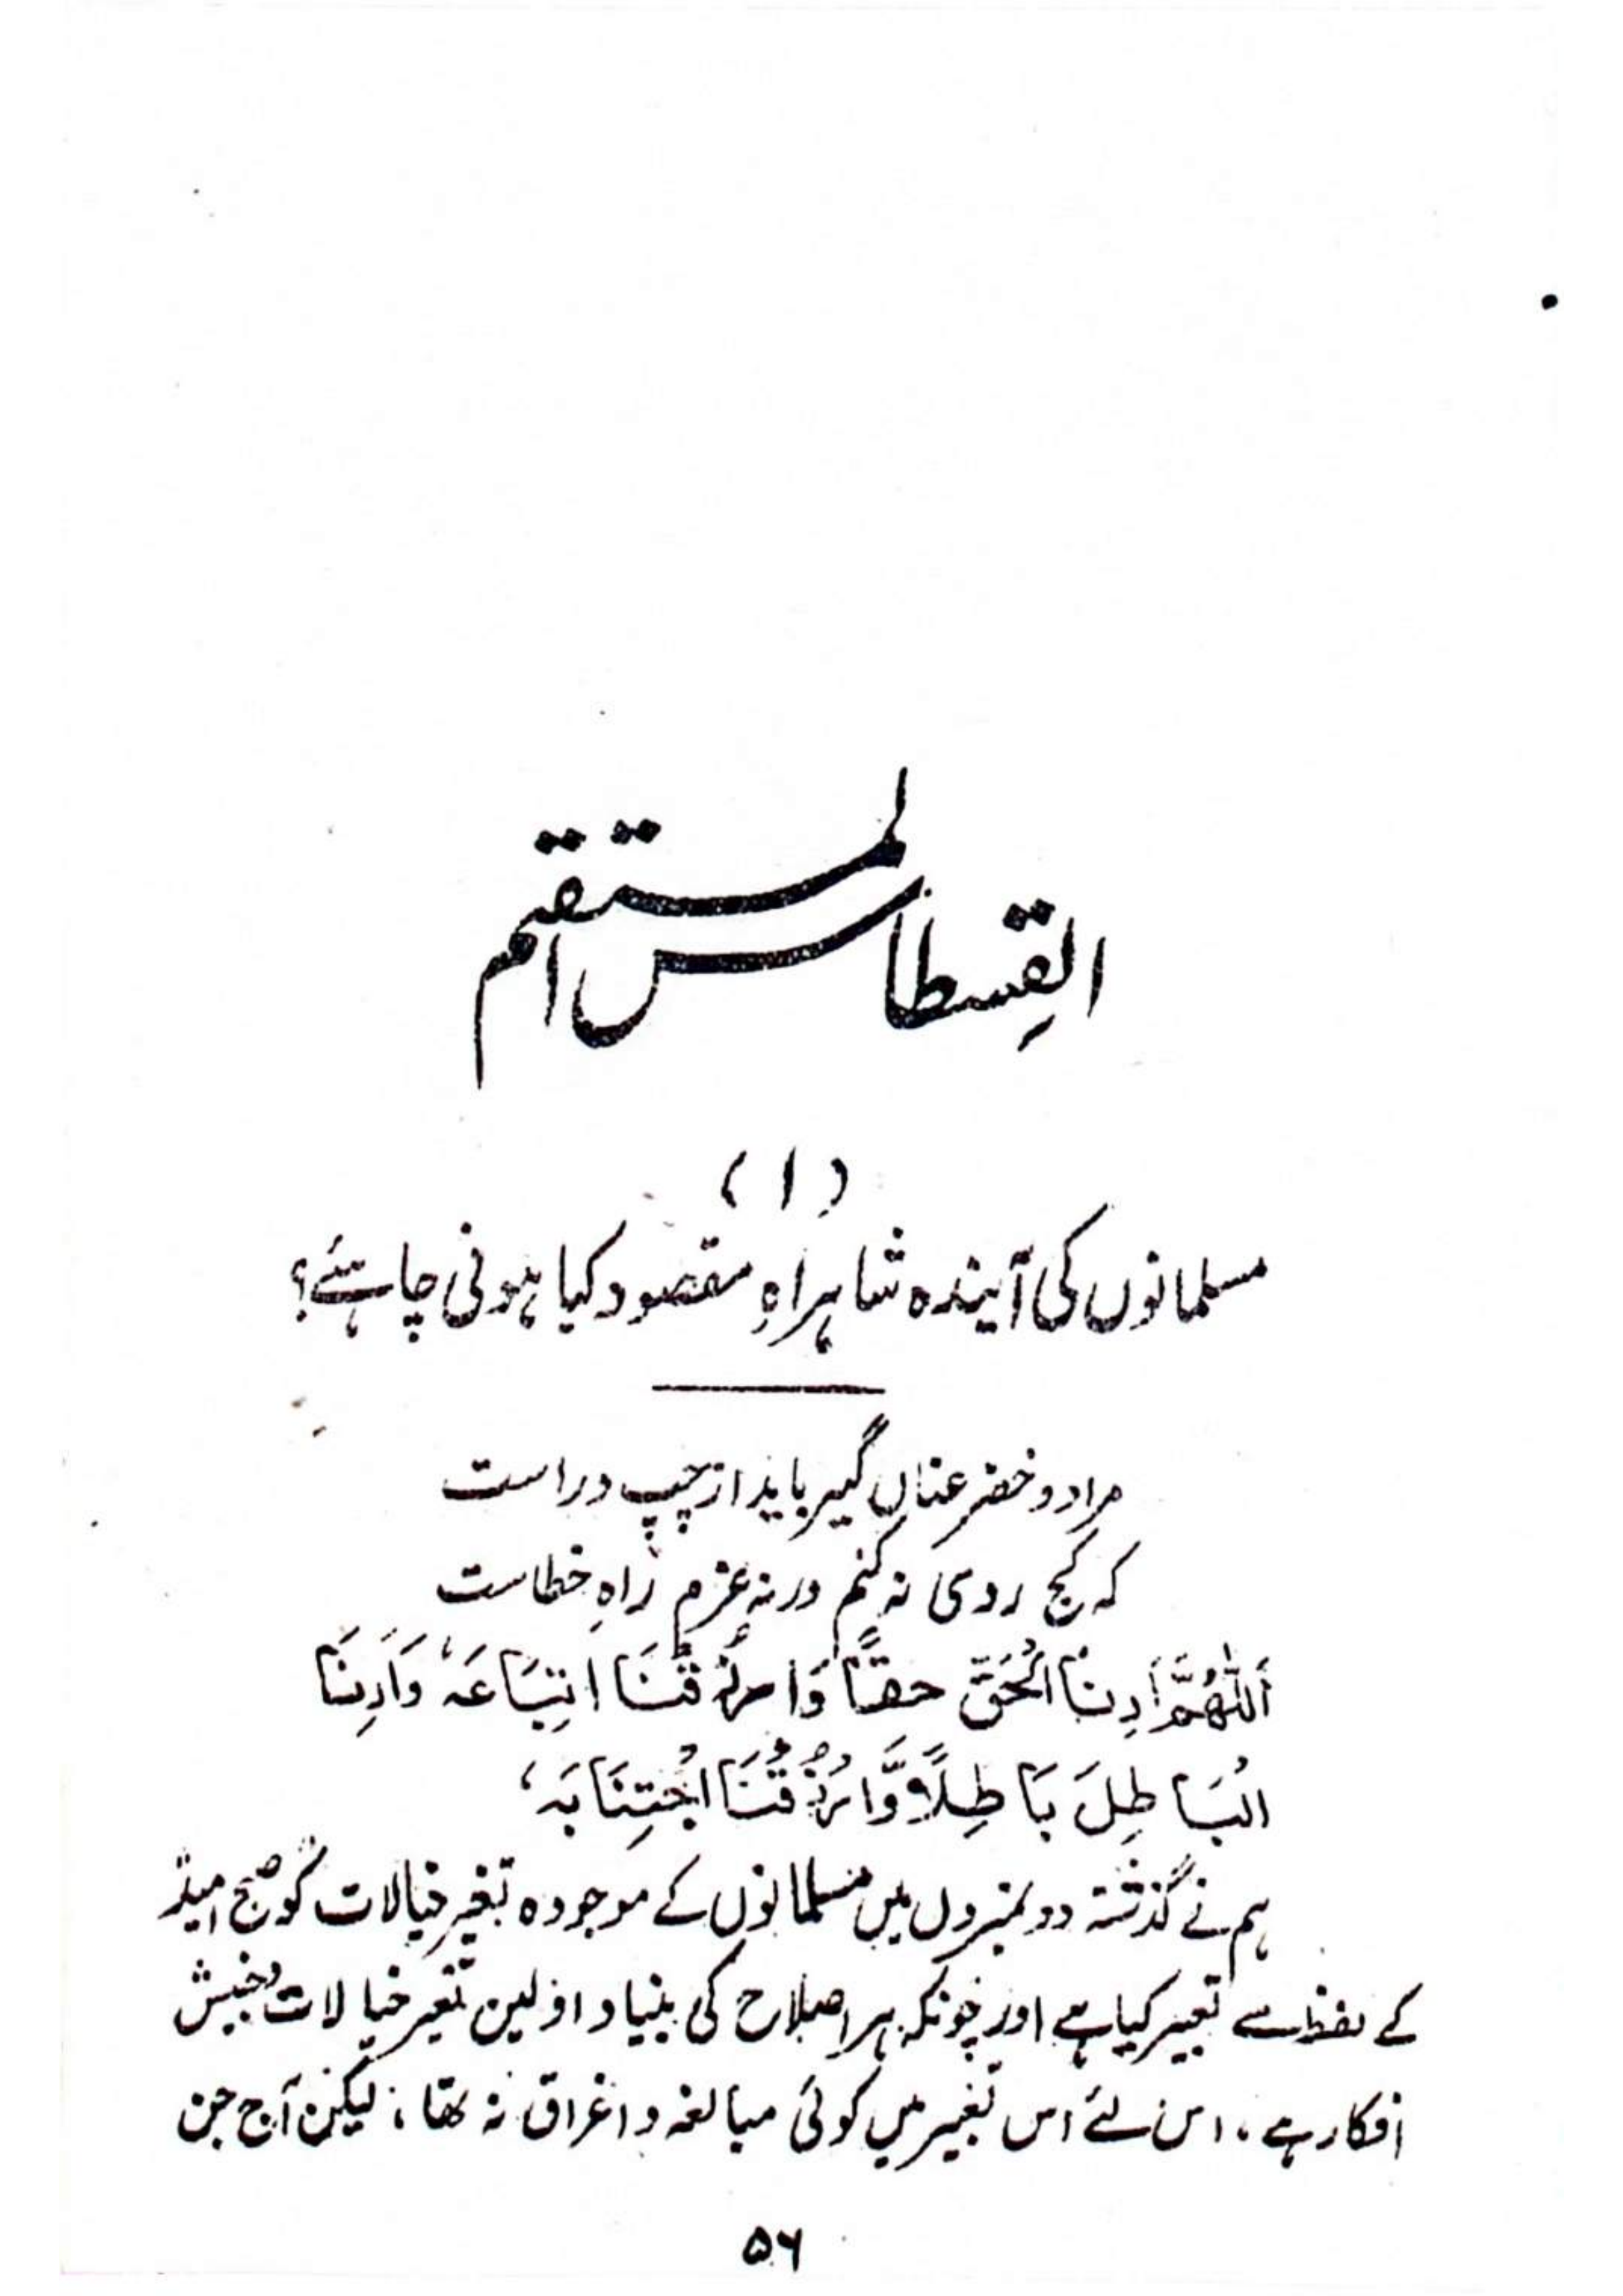 القِسطاس المستقیم
(۱)
مسلمانوں کی آیندہ شاہراہِ مقصود کیا ہونی چاہئے؟
مرا دو خضر عناں گیر باید از چپ و راست
کہ کج روی نہ کنم ورنہ عزم راہِ خطاست
اَللّٰھُمَّ اَرِنَا الْحَقَّ حقًّا وَّارْزُقْنَا اتِّبَاعَہٗ وَاَرِنَا
الْبَاطِلَ بَاطِلًا وَّارْزُقْنَا اجْتِنَابَہٗ
ہم نے گذشتہ دو نمبروں میں مسلمانوں کے موجودہ تغیر خیالات کو صبح امید
کے لفظ سے تعبیر کیا ہے اور چونکہ ہر اصلاح کی بنیاد اولین تغیر خیالات و جنبش
افکار ہے، اس لئے اس تعبیر میں کوئی مبالغہ و اغراق نہ تھا، لیکن آج جن
۵۶